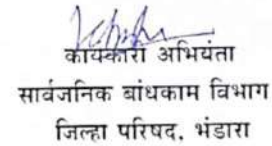 कार्यकारी अभियंता
सार्वजनिक बांधकाम विभाग
जिल्हा परिषद, भंडारा